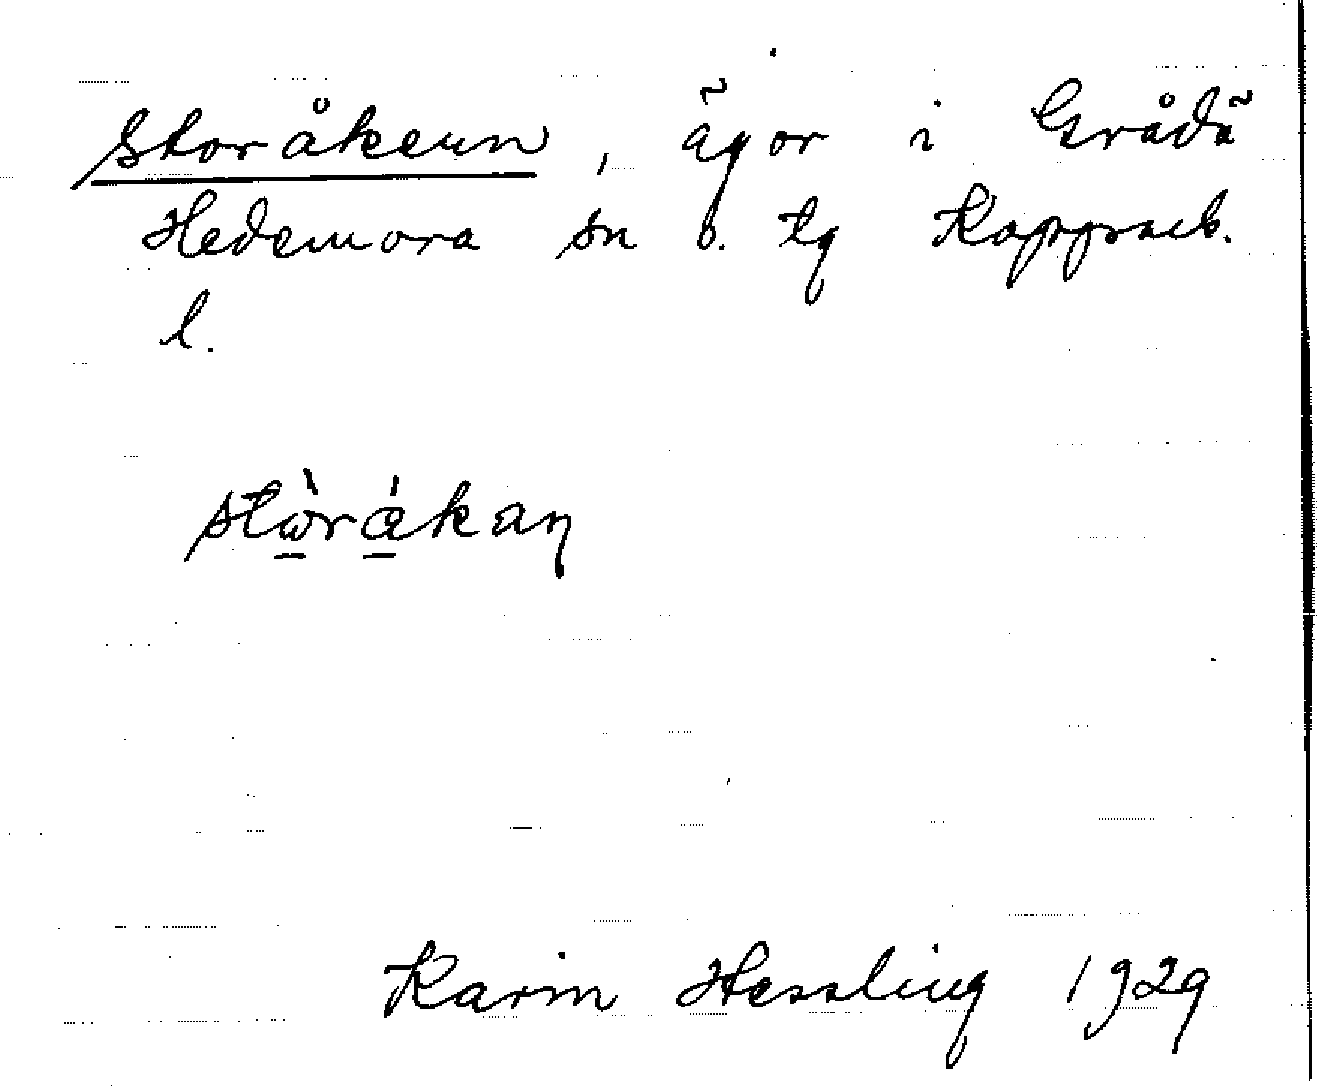 Storåkern, ägor i Grådä
Hedemora sn o. tg Kopparb.
l.
stὼ̲rǻ̲kaɳ
Karin Hessling 1929